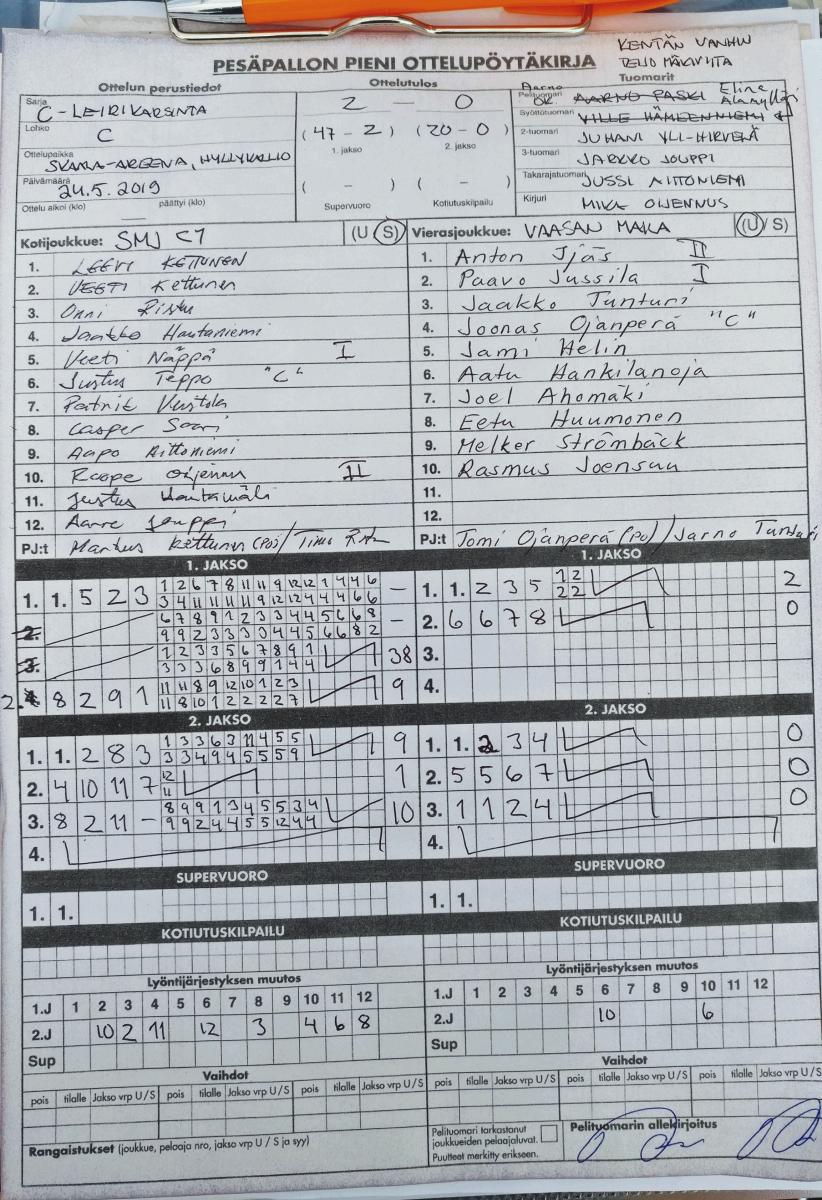 PESÄPALLON PIENI OTTELUPÖYTÄKIRJA
KENTÄN VANHIN
REIJO MÄKIVIITA
Ottelun perustiedot
Ottelutulos
Tuomarit
Sarja
C-LEIRIKARSINTA
Lohko
C
Ottelupaikka
SKAALA-AREENA, HYLLYKALLIO
Päivämäärä
24.5.2019
Ottelu alkoi (klo) — päättyi (klo)
2 — 0
(47 - 2) (20 - 0)
1. jakso 2. jakso
( - ) ( - )
Supervuoro Kotiutuskilpailu
Aarno
Pelituomari OK. AARNO PASKI Elina
Syöttötuomari VILLE HÄMEENNIEMI
2-tuomari JUHANI YLI-HIRVELÄ
3-tuomari JARKKO JOUPPI
Takarajatuomari JUSSI AITTONIEMI
Kirjuri MIKA OIJENNUS
Kotijoukkue: SMJ C1 (U S)
1. LEEVI KETTUNEN
2. VEETI Kettunen
3. Onni Risku
4. Jaakko Hautaniemi
5. Veeti Näppä I
6. Justus Teppo "C"
7. Patrik
8. Casper Saari
9. Aapo Aittoniemi
10. Roope Oijennus II
11. Justus Hautamäki
12. Aarre Jouppi
PJ:t Markus Kettunen (PJ) / Timo
Vierasjoukkue: VAASAN MAILA (U/S)
1. Anton Ijäs II
2. Paavo Jussila I
3. Jaakko Tunturi
4. Joonas Ojanperä "C"
5. Jami Helin
6. Aatu Hankilanoja
7. Joel Ahomäki
8. Eetu Huumonen
9. Melker Strömbäck
10. Rasmus Joensuu
11.
12.
PJ:t Tomi Ojanperä (PJ) / Jarno Tunturi
1. JAKSO
1. 1. 5 2 3 1 2 6 7 8 11 11 9 12 12 1 4 4 6 —
3 4 11 11 11 11 9 12 12 4 4 4 6 6
2. 6 7 8 9 1 2 3 3 4 4 5 6 6 8 —
9 9 2 3 3 3 3 4 4 5 6 6 8 2
3. 1 2 3 3 5 6 7 8 9 1 38
3 3 3 6 8 9 9 1 4 4
2. 4. 8 2 9 1 11 11 8 9 12 10 1 2 3 9
11 8 10 1 2 2 2 2 7
1. JAKSO
1. 1. 2 3 5 1 2 2
2 2
2. 6 6 7 8 0
3.
4.
2. JAKSO
1. 1. 2 8 3 1 3 3 6 3 11 4 5 5 9
3 3 4 9 4 5 5 5 9
2. 4 10 11 7 12 1
11
3. 8 2 11 - 8 9 9 1 3 4 5 5 3 4 10
9 9 2 4 4 5 5 12 4 4
4.
2. JAKSO
1. 1. 2 3 4 0
2. 5 5 6 7 0
3. 1 1 2 4 0
4.
SUPERVUORO
1. 1.
SUPERVUORO
1. 1.
KOTIUTUSKILPAILU
KOTIUTUSKILPAILU
Lyöntijärjestyksen muutos
1.J 1 2 3 4 5 6 7 8 9 10 11 12
2.J 10 2 11 12 3 4 6 8
Sup
Lyöntijärjestyksen muutos
1.J 1 2 3 4 5 6 7 8 9 10 11 12
2.J 10 6
Sup
Vaihdot
pois tilalle Jakso vrp U/S pois tilalle Jakso vrp U/S pois tilalle Jakso vrp U/S
Vaihdot
pois tilalle Jakso vrp U/S pois tilalle Jakso vrp U/S pois tilalle Jakso vrp U/S
Rangaistukset (joukkue, pelaaja nro, jakso vrp U / S ja syy)
Pelituomari tarkastanut
joukkueiden pelaajaluvat.
Puutteet merkitty erikseen.
Pelituomarin allekirjoitus